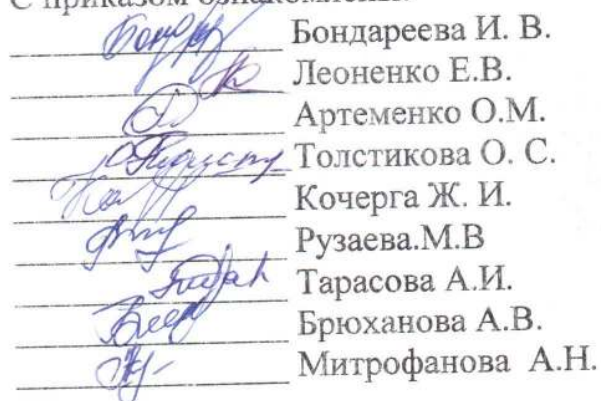 С приказом ознакомлены:
Бондареева И. В.
Леоненко Е.В.
Артеменко О.М.
Толстикова О. С.
Кочерга Ж. И.
Рузаева.М.В
Тарасова А.И.
Брюханова А.В.
Митрофанова А.Н.